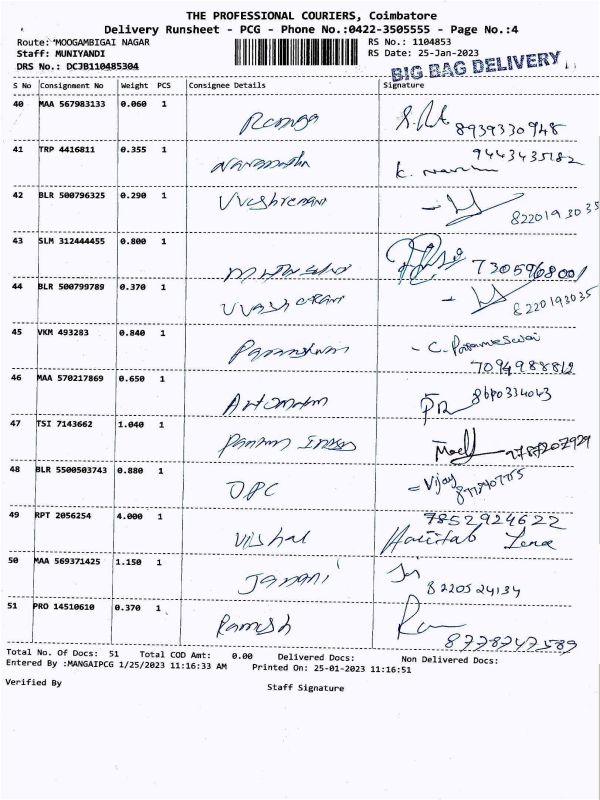 THE PROFESSIONAL COURIERS, Coimbatore
Delivery Runsheet - PCG - Phone No.:0422-3505555 - Page No.:4
Route: MOOGAMBIGAI NAGAR RS No.: 1104853
Staff: MUNIYANDI RS Date: 25-Jan-2023
DRS No.: DCJB110485304 BIG BAG DELIVERY
S No Consignment No Weight PCS Consignee Details Signature
40 MAA 567983133 0.060 1
8939330948
41 TRP 4416811 0.355 1 9443435182
42 BLR 500796325 0.290 1
8220193035
43 SLM 312444455 0.800 1
7305968001
44 BLR 500799789 0.370 1
8220193035
45 VKM 493283 0.840 1
7094988812
46 MAA 570217869 0.650 1
8690334043
47 TSI 7143662 1.040 1
9787207929
48 BLR 5500503743 0.880 1
DPC Vijay
49 RPT 2056254 4.000 1 7852924622
Vishal
50 MAA 569371425 1.150 1
Janani 8220524134
51 PRO 14510610 0.370 1
Ramesh 8778747589
Total No. Of Docs: 51 Total COD Amt: 0.00 Delivered Docs: Non Delivered Docs:
Entered By :MANGAIPCG 1/25/2023 11:16:33 AM Printed On: 25-01-2023 11:16:51
Verified By Staff Signature